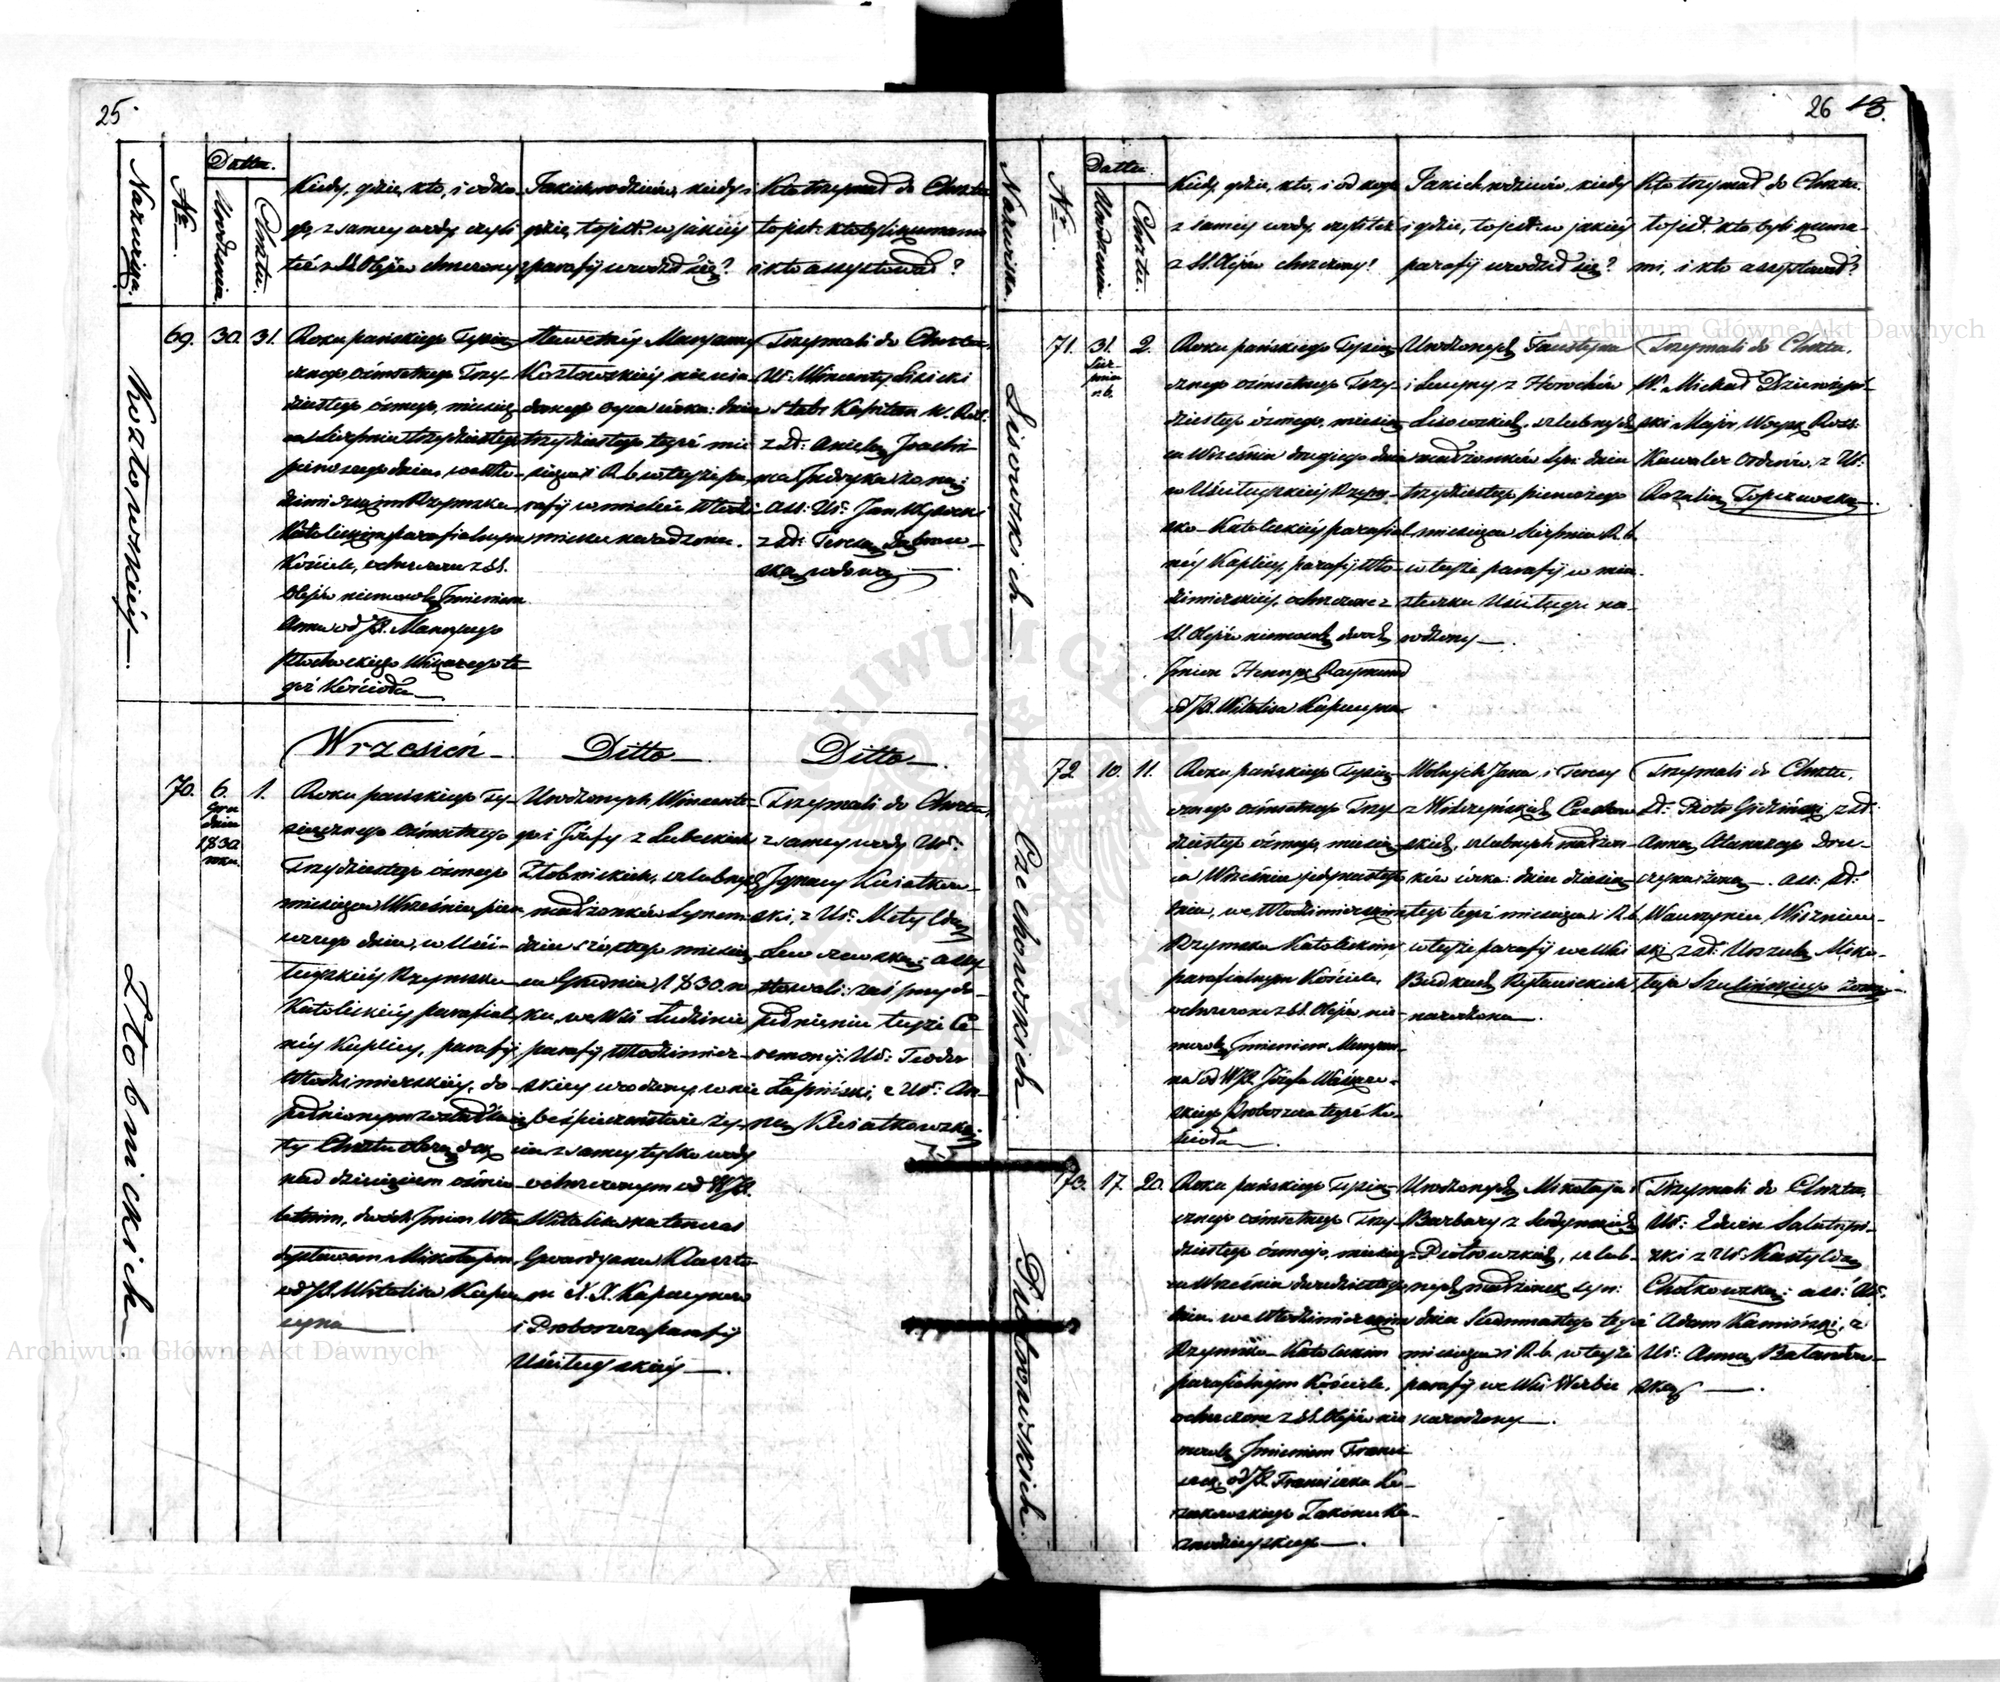 25
Datta.
Nazwiska.
Nr
Urodzenia
Chrztu.
Kiedy, gdzie, kto, i od ko-
go, z samey wody czyli
też z SS. Olejów chrzczony?
Jakich rodziców, kiedy i
gdzie, to jest: w jakiéy
parafij urodził się?
Kto trzymał do Chrztu
to jest: kto byli kumami
i kto assystował?
Kozłowskiéy
69. 30. 31.
Roku pańskiego Tysią-
cznego ośmsetnego Trzy-
dziestego ósmego, miesią-
ca Sierpnia trzydziestego
pierwszego dnia, we Wło-
dzimirskim Rzymsko
Katolickim parafialnym
Kościele, ochrzczono z SS.
Olejów niemowlę Imieniem
Anna od JX.
Wikarego te-
goż Kościoła
Sławetnéy Maryanny
Kozłowskiéy niewia-
domego oyca córka: dnia
trzydziestego tegoż mie-
siąca i R. b. w teyże pa-
rafij w mieście Włodzi-
mirzu narodzona.
Trzymali do Chrztu,
Ur. Wincenty Lisicki
Stabs Kapitan w. Ross.
z Sł: Anielą Joachi-
ma Jędryka żoną;
ass: Ur. Jan
z Sł: Teresą Dąbrow-
ską wdową.
Wrzesień
Ditto
Ditto
Złobnickich
70. 6. 1.
Gru
dnia
1830
roku.
Roku pańskiego Ty-
siącznego ośmsetnego
Trzydziestego ósmego
miesiąca Września pier-
wszego dnia, w Uści-
ługskiéy Rzymsko
Katolickiéy parafial-
néy Kaplicy, parafij
Włodzimirskiéy, do-
pełnionym został
ty Chrztu obrządek
nad dziecięciem ośmio-
letnim, dwóch Imion Wła-
dysławem Mikołajem
od JX. Witalisa Kapu-
cyna
Urodzonych Wincente-
go i Józefy z Lubeckich
Złobnickich, ślubnych
małżonków Synem
dnia szóstego miesią-
ca Grudnia 1830. ro-
ku, we Wsi Ludzinie
parafij Włodzimir-
skiey urodzony, w nie
bezpieczeństwie ży-
cia z samey tylko wody
ochrzczonym od WJX.
Witalisa na ten czas
Gwardyana Klaszto-
ru X.X. Kapucynów
i Proboszcza parafij
Uściługskiéy
Trzymali do Chrztu,
z samey wody Ur:
Ignacy Kwiatkow-
ski, z Ur: Matyldą
Lewczewską; assy-
stowali: zaś przy do-
pełnieniu teyże Ce-
remonij: Ur: Teodor
Łapiński, z Ur: An-
ną Kwiatkowską.
26 13.
Datta.
Nazwiska.
Nr
Urodzenia
Chrztu.
Kiedy, gdzie, kto, i od kogo
z samey wody, czyli też
z SS. Olejów chrzczony?
Jakich rodziców, kiedy
i gdzie, to jest: w jakiéy
parafij urodził się?
Kto trzymał do Chrztu.
to jest: kto byli kuma-
mi, i kto assystował?
Lisowskich
71. 31. 2.
Sier-
pnia
r. b.
Roku pańskiego Tysią-
cznego ośmsetnego Trzy-
dziestego ósmego, miesią-
ca Września drugiego dnia
w Uściługskiéy Rzym-
sko-Katolickiéy parafial-
néy Kaplicy, parafij Wło-
dzimirskiéy, ochrzczono z
SS. Olejów niemowlę dwóch
Imion Henryk Raymund
od JX. Witalisa Kapucyna
Urodzonych Faustyna
i Lucyny z Horochów
Lisowskich, ślubnych
małżonków Syn: dnia
trzydziestego pierwszego
miesiąca Sierpnia R. b.
w teyże parafij w mia-
steczku Uściługu na-
rodzony
Trzymali do Chrztu,
W. Michał
Major Woysk Ross.
Kawaler Orderów, z Ur:
Rozalią Topczewską
Czechowskich
72. 10. 11.
Roku pańskiego Tysią-
cznego ośmsetnego Trzy-
dziestego ósmego, miesią-
ca Września jedynastego
dnia, we Włodzimirskim
Rzymsko Katolickim
parafialnym Kościele,
ochrzczono z SS. Olejów nie-
mowlę Imieniem Maryan-
na od WJX. Józefa
Proboszcza tegoż Ko-
ścioła
Wolnych Jana i Teresy
z Czechow-
skich, ślubnych małżon-
ków córka: dnia dziesią-
tego tegoż miesiąca i R. b.
w teyże parafij we Wsi
Budkach
narodzona
Trzymali do Chrztu,
Sł: Piotr z Sł:
Anną
żoną. ass: Sł:
Wawrzyniec Wiszniew-
ski z Sł: Urszulą Miko-
łaja Szulińskiego żoną.
Piotrowskich
73. 17. 20.
Roku pańskiego Tysią-
cznego ośmsetnego Trzy-
dziestego ósmego, miesią-
ca Września dwudziestego
dnia, we Włodzimirskim
Rzymsko-Katolickim
parafialnym Kościele,
ochrzczono z SS. Olejów nie-
mowlę Imieniem Franci-
szek, od JX. Franciszka
Zakonu Ka-
znodzieyskiego
Urodzonych Mikołaja i
Barbary z
Piotrowskich, ślub-
nych małżonków syn:
dnia Siedmnastego tegoż
miesiąca i R. b. w teyże
parafij we Wsi Werbie
narodzony
Trzymali do Chrztu,
Ur: Edwin
z Ur: Kastyldą
ass: Ur:
Adam Kamiński, z
Ur: Anną
ską
Archiwum Główne Akt Dawnych
Archiwum Główne Akt Dawnych